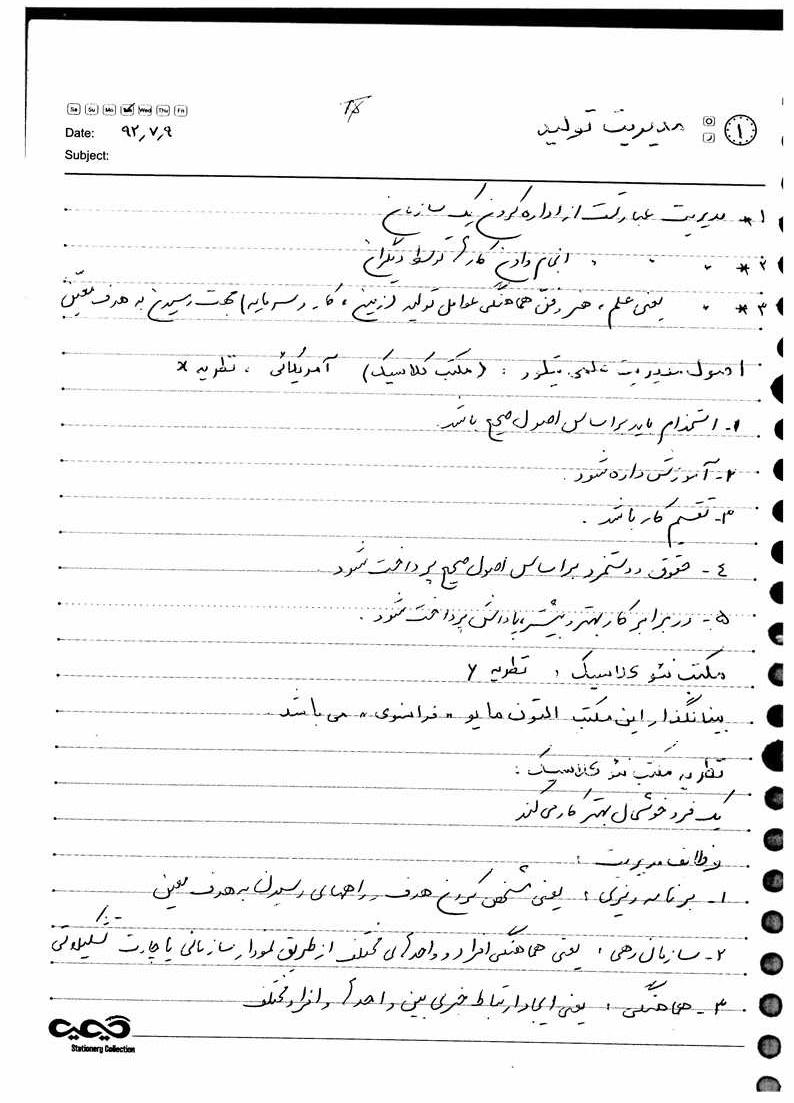 Sa Su Mo Tu Wed Thu Fri
Date: ۹۲,۷,۹
Subject:
مدیریت تولید
۱
۱* مدیریت عبارتست از اداره کردن یک سازمان
۲* " " , انجام دادن کارها توسط دیگران
۳* " یعنی علم ، هنر و فن هماهنگی عوامل تولید (زمین ، کار و سرمایه) جهت رسیدن به هدف معین
اصول مدیریت علمی تیلور : (مکتب کلاسیک) آمریکائی ، نظریه x
۱- استخدام باید بر اساس اصول صحیح باشد.
۲- آموزش داده شود .
۳- تقسیم کار باشد .
٤- حقوق و دستمزد بر اساس اصول صحیح پرداخت شود .
۵- در برابر کار بهتر و بیشتر پاداش پرداخت شود .
مکتب نئو کلاسیک : نظریه y
بنیانگذار این مکتب التون مایو " فرانسوی " می باشد .
نظریه مکتب نئو کلاسیک :
یک فرد خوشحال بهتر کار می کند
وظائف مدیریت :
۱- برنامه ریزی : یعنی مشخص کردن هدف و راههای رسیدن به هدف معین
۲- سازماندهی : یعنی هماهنگی افراد و واحدهای مختلف از طریق نمودار سازمانی یا چارت تشکیلاتی
۳- هماهنگی : یعنی ایجاد ارتباط خبری بین واحدها و افراد مختلف
Stationery Collection